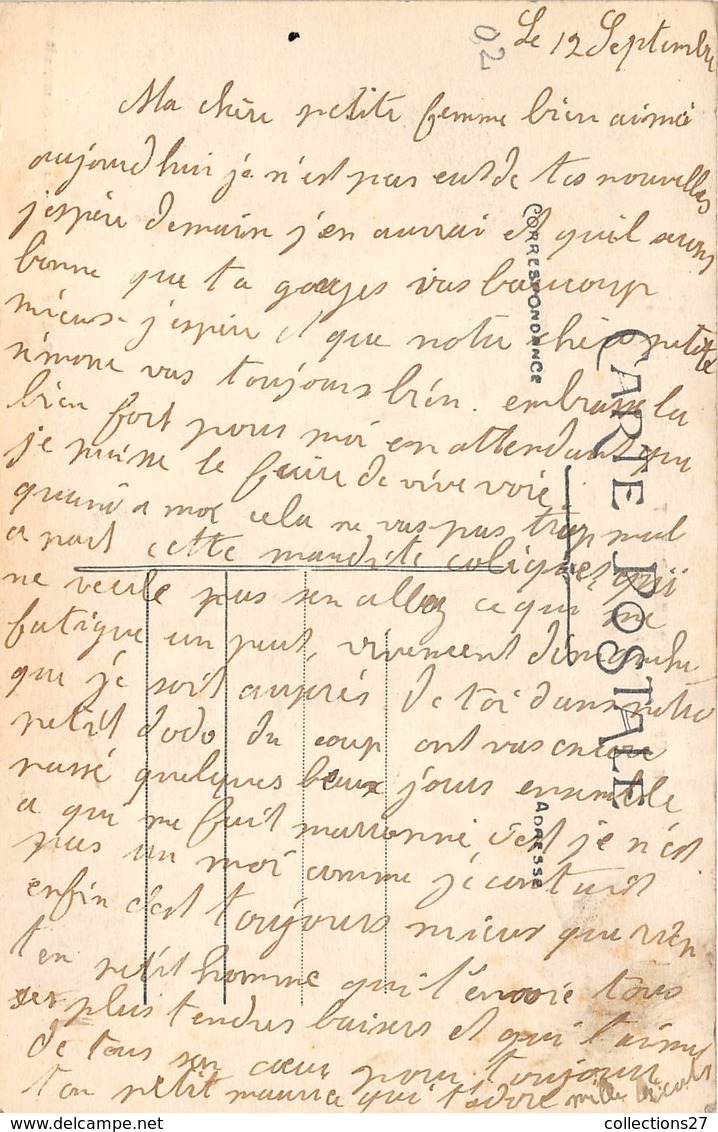 Le 12 Septembre
02
Ma chère petite femme bien aimé
aujourdhui je n'est pas eut de tes nouvelles
j'espère demain j'en aurrai et quil serons
bonne que ta gorges vas baucoup
mieux j'espère et que notre chère petite
simone vas toujours bien. embrasse la
bien fort pour moi en attendant que
je puisse le faire de vive voie
quand a moi cela ne vas pas trop mal
a part cette maudite coliques qui
ne veule pas s'en aller ce qui me
fatigue un peut, vivement dimanche
que je soit auprès de toi dans notre
petit dodo du coup ont vas encore
passé quelques beaux jours ensemble
a qui me fait marronné c'est je n'est
pas un moi comme j'écontait
enfin c'est toujours mieux que rien
ten petit homme qui t'envoie tous
ses plus tendres baisers et qui t'aime
de tous son cœur pour toujours
ton petit maurice qui t'adore mille
CORRESPONDANCE
CARTE POSTALE
ADRESSE
collections27